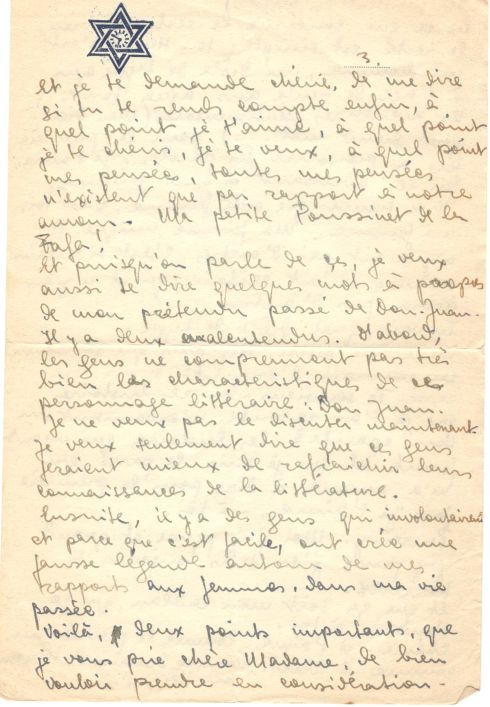 3.
et je te demande chérie, de me dire
si tu te rends compte enfin, à
quel point je t'aime, à quel point
je te chéris, je te veux, à quel point
mes pensées, toutes mes pensées
n'existent que par rapport à notre
amour. Ma petite Poussinet de la
!
Et puisqu'on parle de ça, je veux
aussi te dire quelques mots à propos
de mon prétendu passé de Don-Juan.
Il y a deux malentendus. D'abord,
les gens ne comprennent pas très
bien les characteristiques de ce
personnage littéraire: Don Juan.
Je ne veux pas le discuter maintenant.
Je veux seulement dire que ces gens
feraient mieux de rafraichir leurs
connaissances de la littérature.
Ensuite, il y a des gens qui
et parce que c'est facile, ont crée une
fausse légende autour de mes
rapports aux femmes, dans ma vie
passée.
Voilà, deux points importants, que
je vous prie chère Madame, de bien
vouloir prendre en considération.